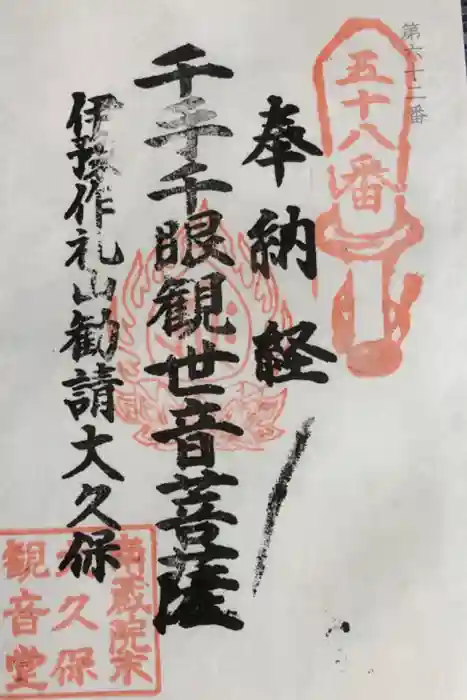 第六十二番
五十八番
奉納経
千手千眼観世音菩薩
伊豫作礼山勧請大久保
南蔵院末
大久保
観音堂